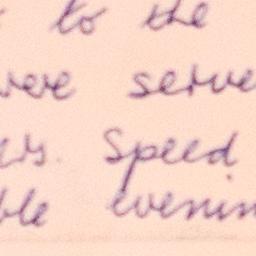 to the
were serve
ers. Speed
ble evenin